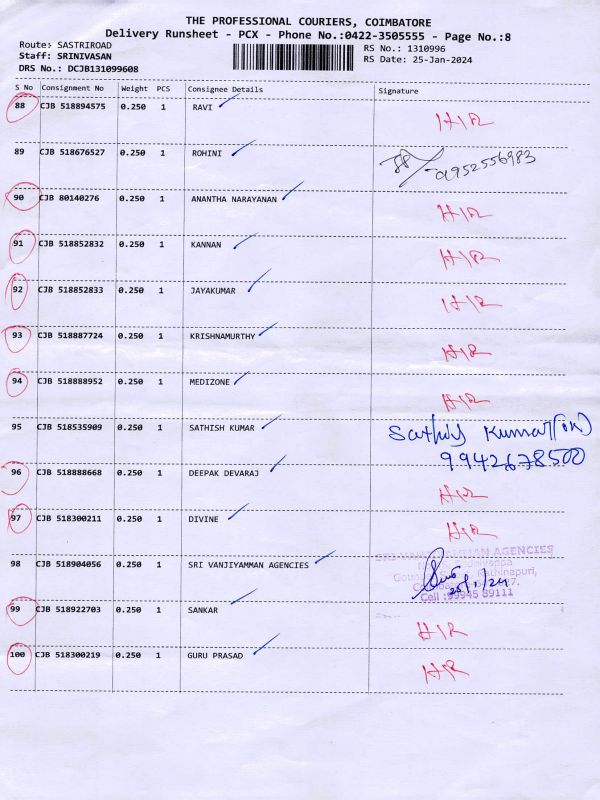 THE PROFESSIONAL COURIERS, COIMBATORE
Delivery Runsheet - PCX - Phone No.:0422-3505555 - Page No.:8
Route: SASTRIROAD
RS No.: 1310996
Staff: SRINIVASAN
RS Date: 25-Jan-2024
DRS No.: DCJB131099608
S No Consignment No Weight PCS Consignee Details Signature
88 CJB 518894575 0.250 1 RAVI H/R
89 CJB 518676527 0.250 1 ROHINI
90 CJB 80140276 0.250 1 ANANTHA NARAYANAN H/R
91 CJB 518852832 0.250 1 KANNAN H/R
92 CJB 518852833 0.250 1 JAYAKUMAR H/R
93 CJB 518887724 0.250 1 KRISHNAMURTHY H/R
94 CJB 518888952 0.250 1 MEDIZONE H/R
95 CJB 518535909 0.250 1 SATHISH KUMAR
9942678500
96 CJB 518888668 0.250 1 DEEPAK DEVARAJ H/R
97 CJB 518300211 0.250 1 DIVINE H/R
98 CJB 518904056 0.250 1 SRI VANJIYAMMAN AGENCIES
AGENCIES
Cell :99945 89111
99 CJB 518922703 0.250 1 SANKAR H/R
100 CJB 518300219 0.250 1 GURU PRASAD H/R